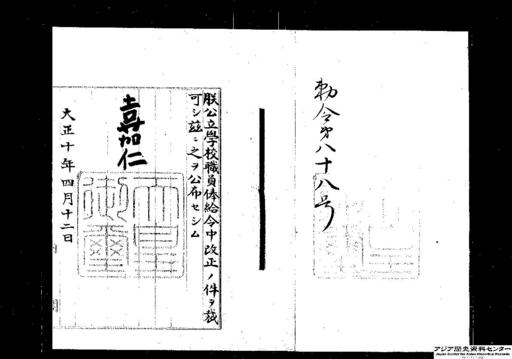 勅令第八十八号
朕公立學校職員俸給令中改正ノ件ヲ裁
可シ茲ニ之ヲ公布セシム
嘉仁
天皇御璽
大正十年四月十二日
アジア歴史資料センター
Japan Center for Asian Historical Records